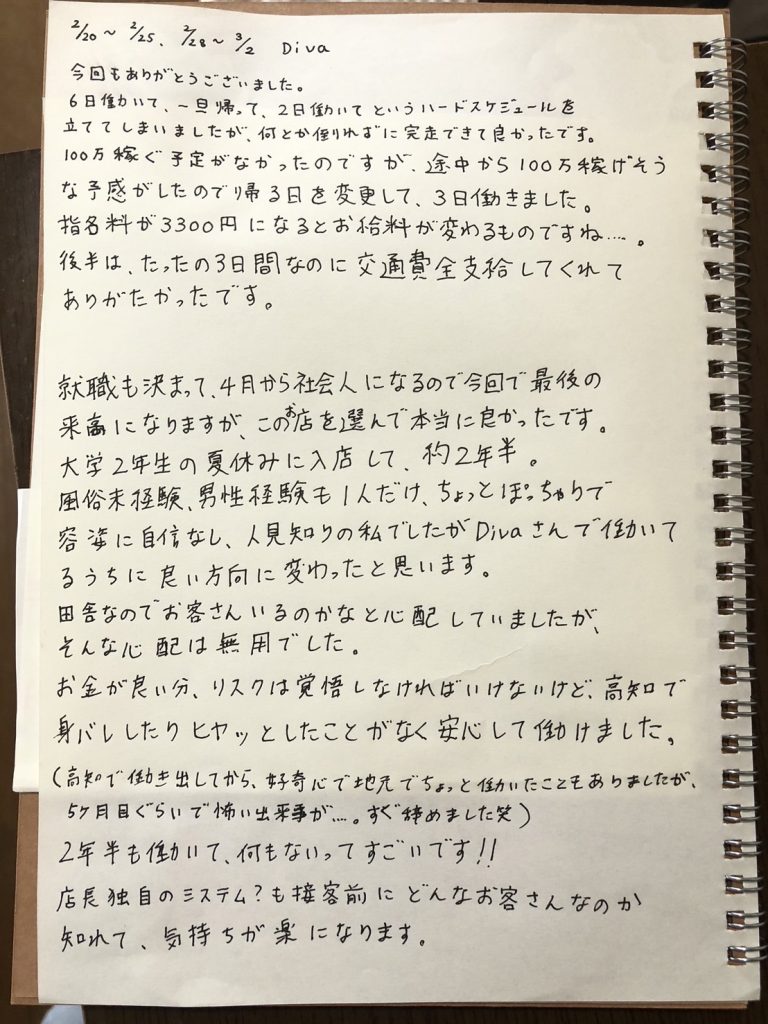 2/20～2/25、2/28～3/2　Diva
今回もありがとうございました。
6日働いて、一旦帰って、2日働いてというハードスケジュールを
立ててしまいましたが、何とか倒れずに完走できて良かったです。
100万稼ぐ予定がなかったのですが、途中から100万稼げそう
な予感がしたので帰る日を変更して、3日働きました。
指名料が3300円になるとお給料が変わるものですね….。
後半は、たったの3日間なのに交通費全支給してくれて
ありがたかったです。
就職も決まって、4月から社会人になるので今回で最後の
来高になりますが、このお店を選んで本当に良かったです。
大学2年生の夏休みに入店して、約2年半。
風俗未経験、男性経験も1人だけ、ちょっとぽっちゃりで
容姿に自信なし、人見知りの私でしたがDivaさんで働いて
るうちに良い方向に変わったと思います。
田舎なのでお客さんいるのかなと心配していましたが、
そんな心配は無用でした。
お金が良い分、リスクは覚悟しなければいけないけど、高知で
身バレしたりヒヤッとしたことがなく安心して働けました。
(高知で働き出してから、好奇心で地元でちょっと働いたこともありましたが、
5ヶ月目ぐらいで怖い出来事が….。すぐ辞めました笑)
2年半も働いて、何もないってすごいです!!
店長独自のミステム?も接客前にどんなお客さんなのか
知れて、気持ちが楽になります。